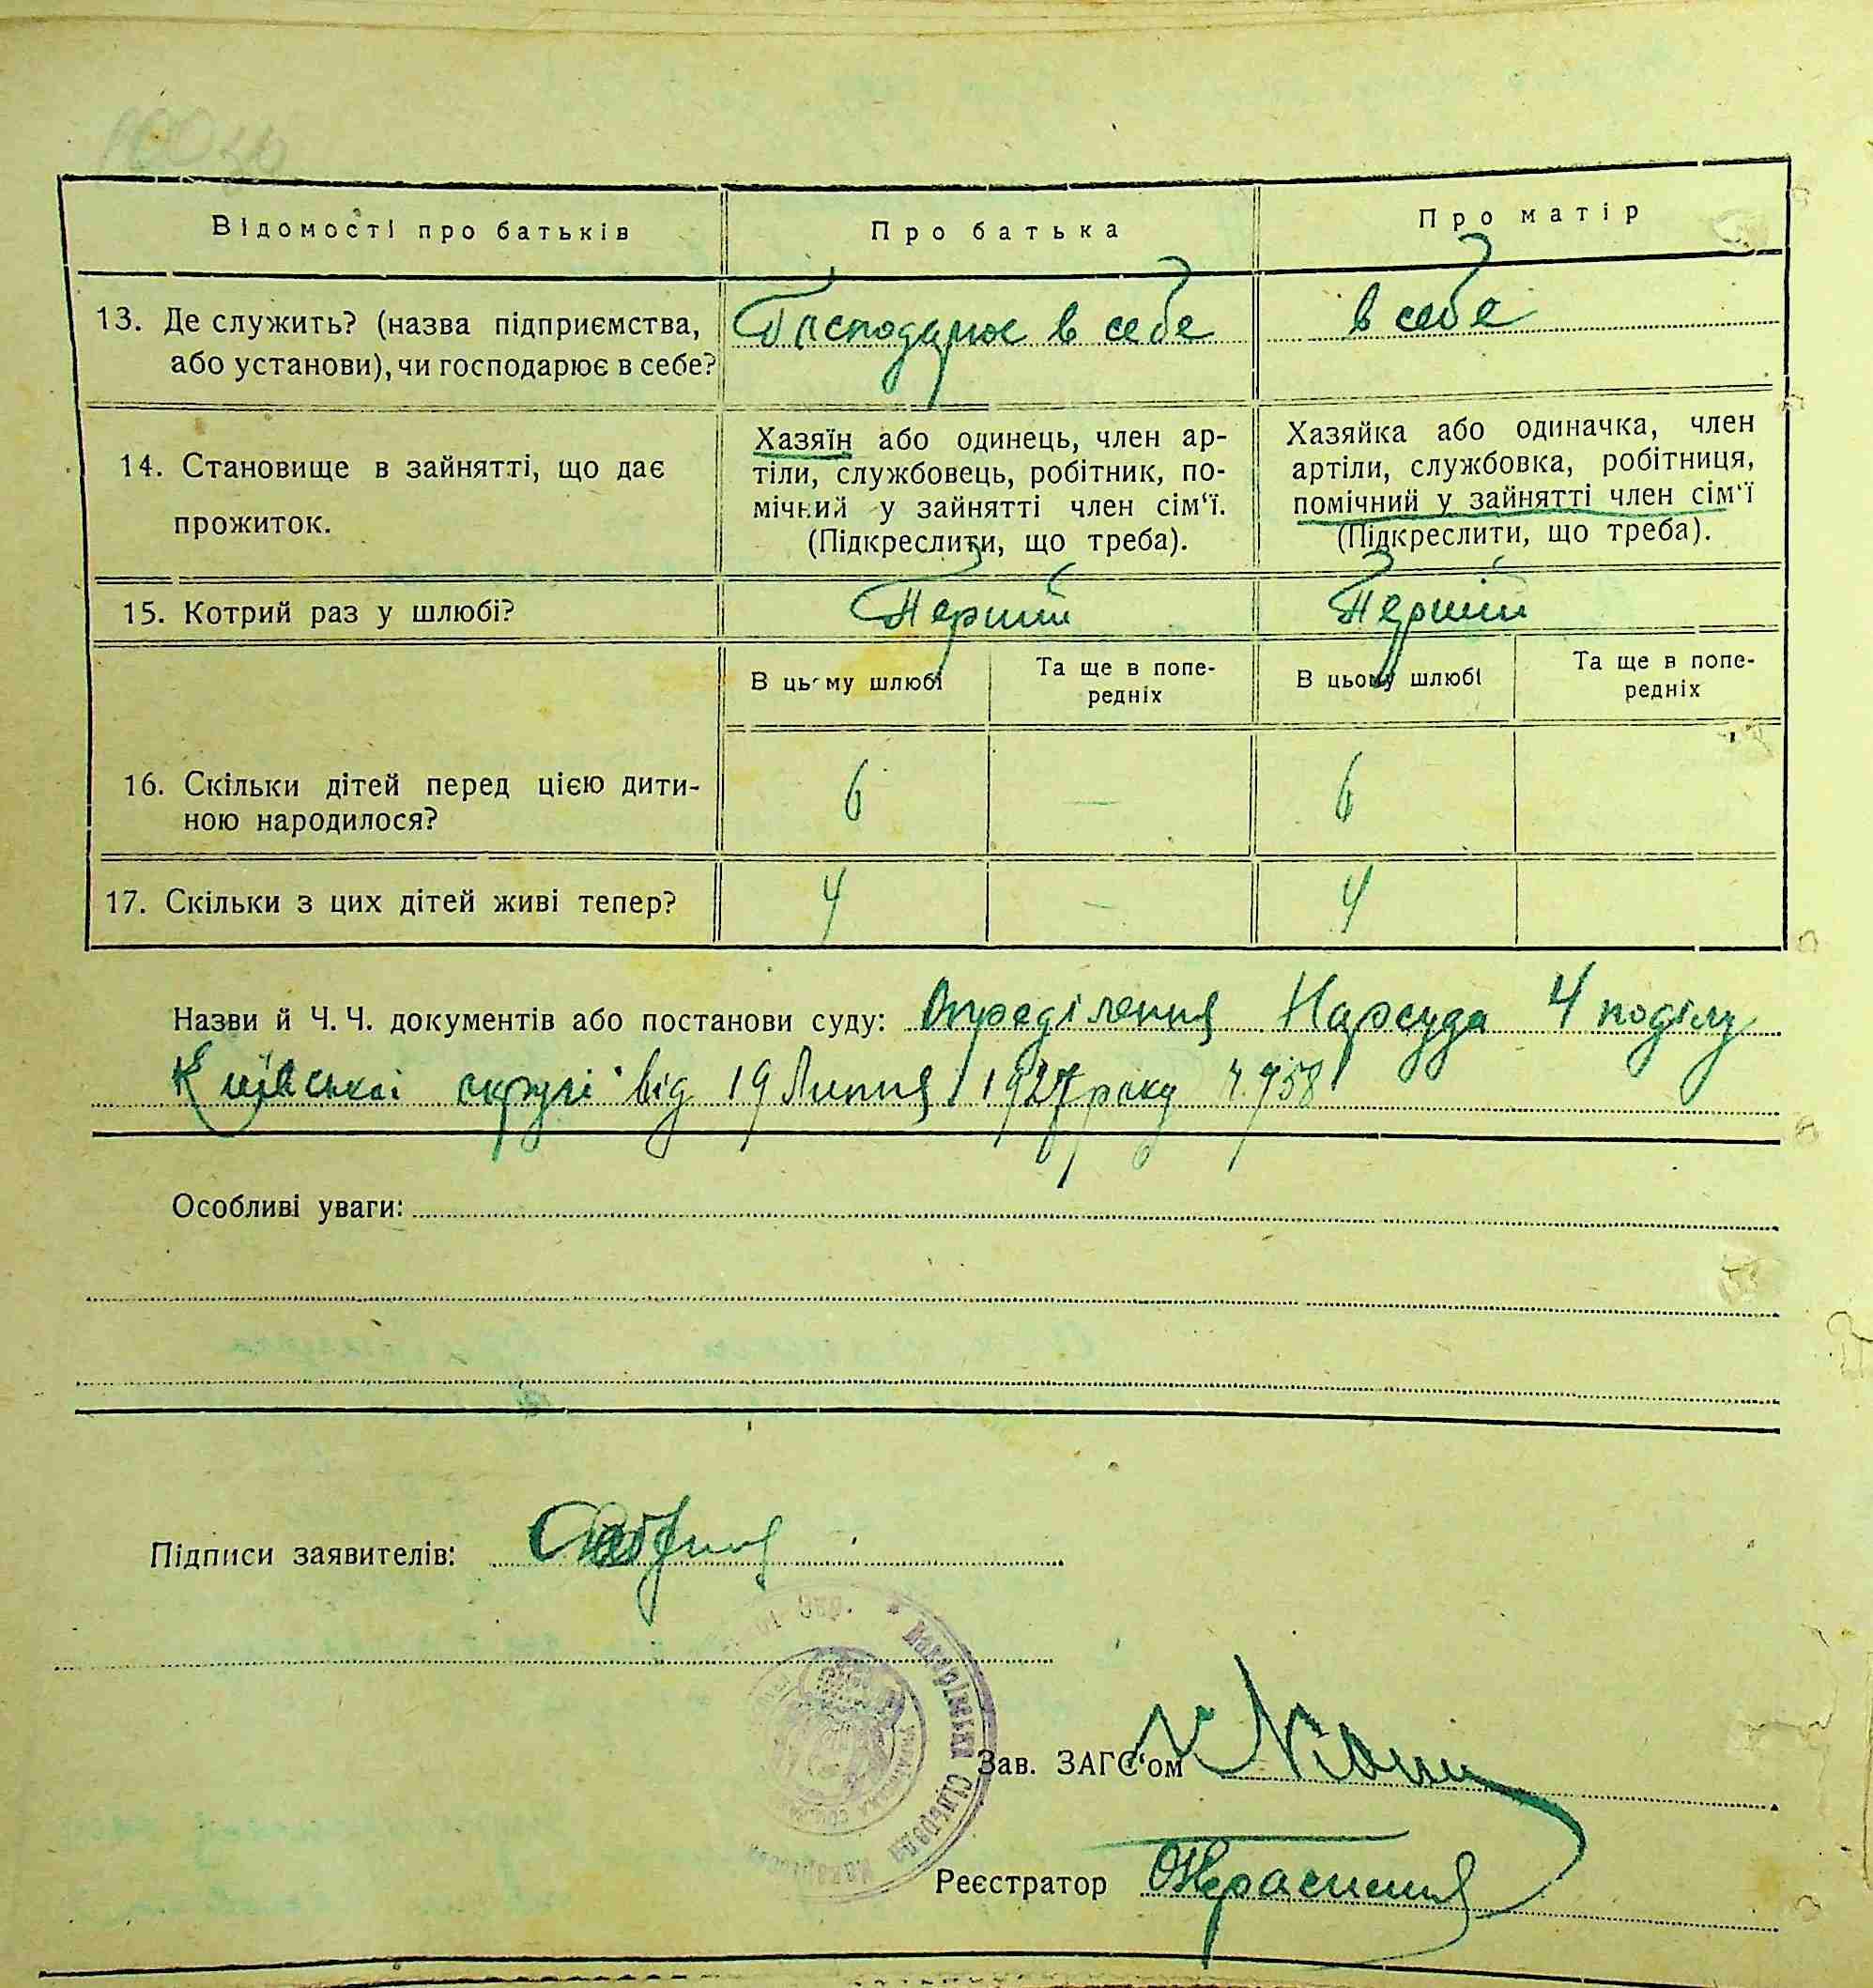 Відомості про батьків
Про батька
Про матір
13. Де служить? (назва підприємства,
або установи), чи господарює в себе?
Господарює в себе
в себе
14. Становище в зайнятті, що дає
прожиток.
Хазяїн або одинець, член ар-
тіли, службовець, робітник, по-
мічний у зайнятті член сім‘ї.
(Підкреслити, що треба).
Хазяйка або одиначка, член
артіли, службовка, робітниця,
помічний у зайнятті член сім‘ї
(Підкреслити, що треба).
15. Котрий раз у шлюбі?
Перший
Перший
В цьому шлюбі
Та ще в попе-
редніх
В цьому шлюбі
Та ще в попе-
редніх
16. Скільки дітей перед цією дити-
ною народилося?
6
—
6
17. Скільки з цих дітей живі тепер?
4
—
4
Назви й Ч. Ч. документів або постанови суду: Опреділення Нарсуда 4 поділу
Київської округі від 19 Липня 1927 року ч. 758
Особливі уваги:
Підписи заявителів:
Макарівська сільрада
Зав. ЗАГС‘ом
Реєстратор